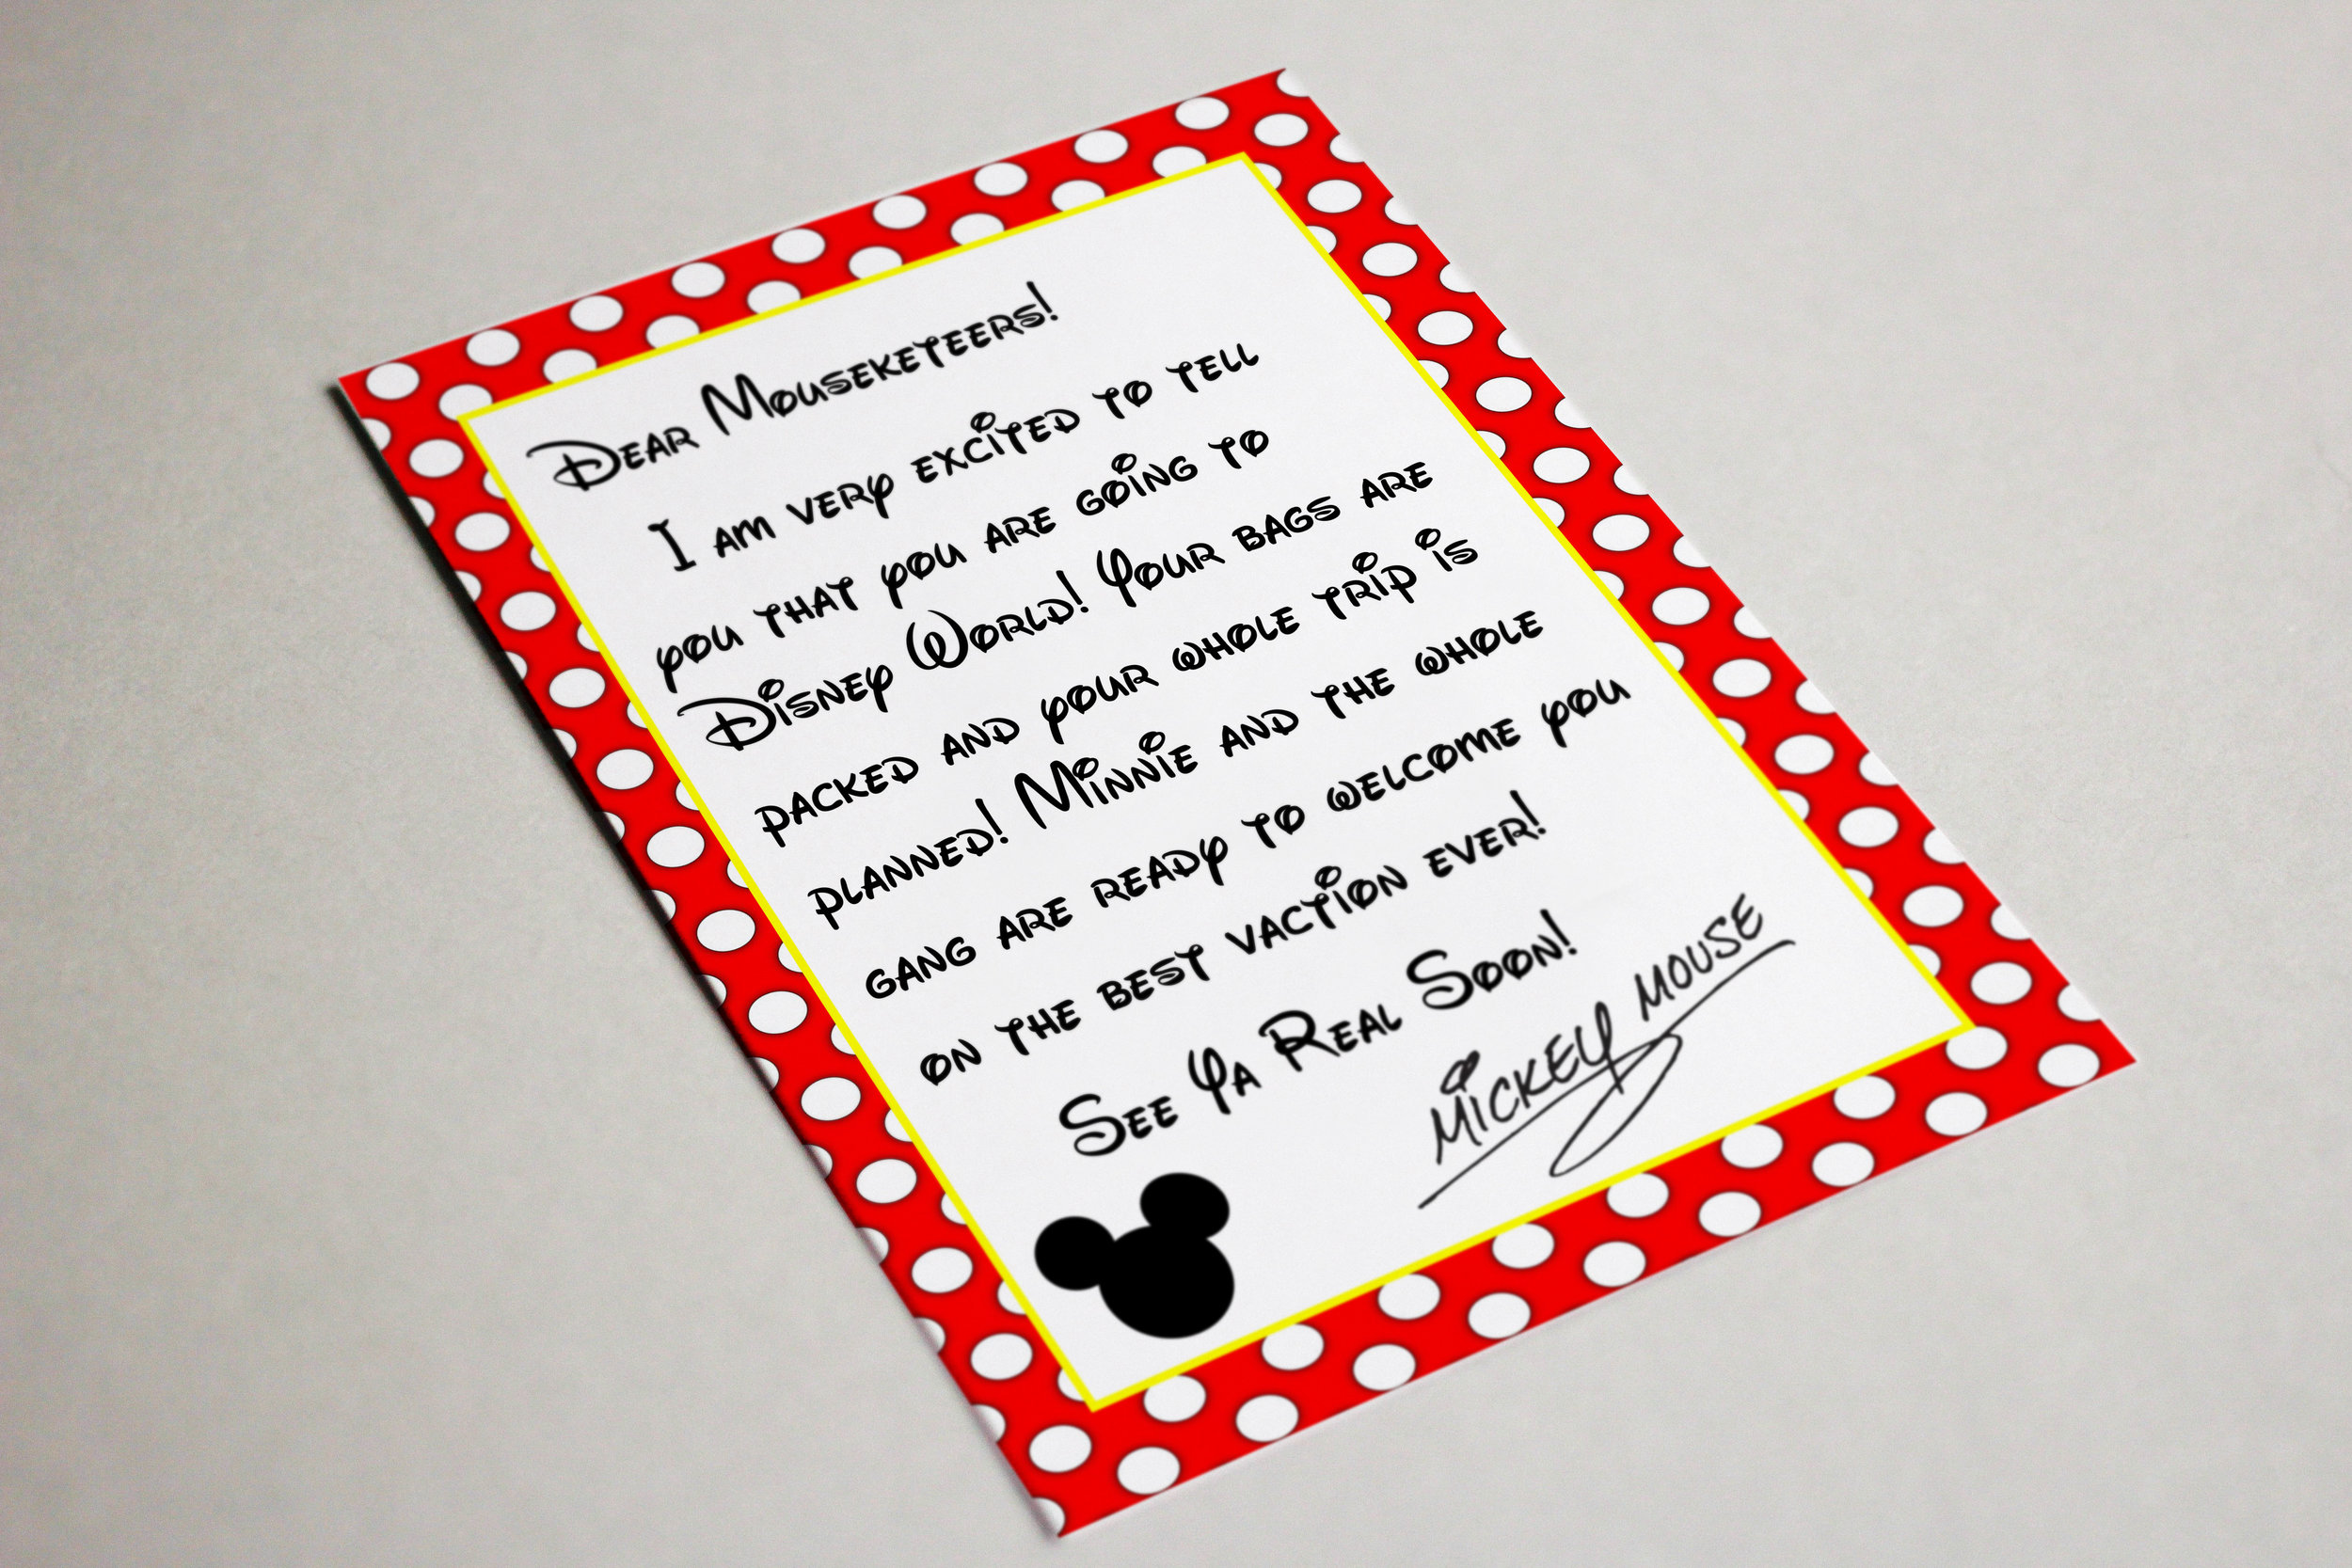 Dear Mouseketeers!
I am very excited to tell
you that you are going to
Disney World! Your bags are
packed and your whole trip is
planned! Minnie and the whole
gang are ready to welcome you
on the best vaction ever!
See Ya Real Soon!
Mickey Mouse